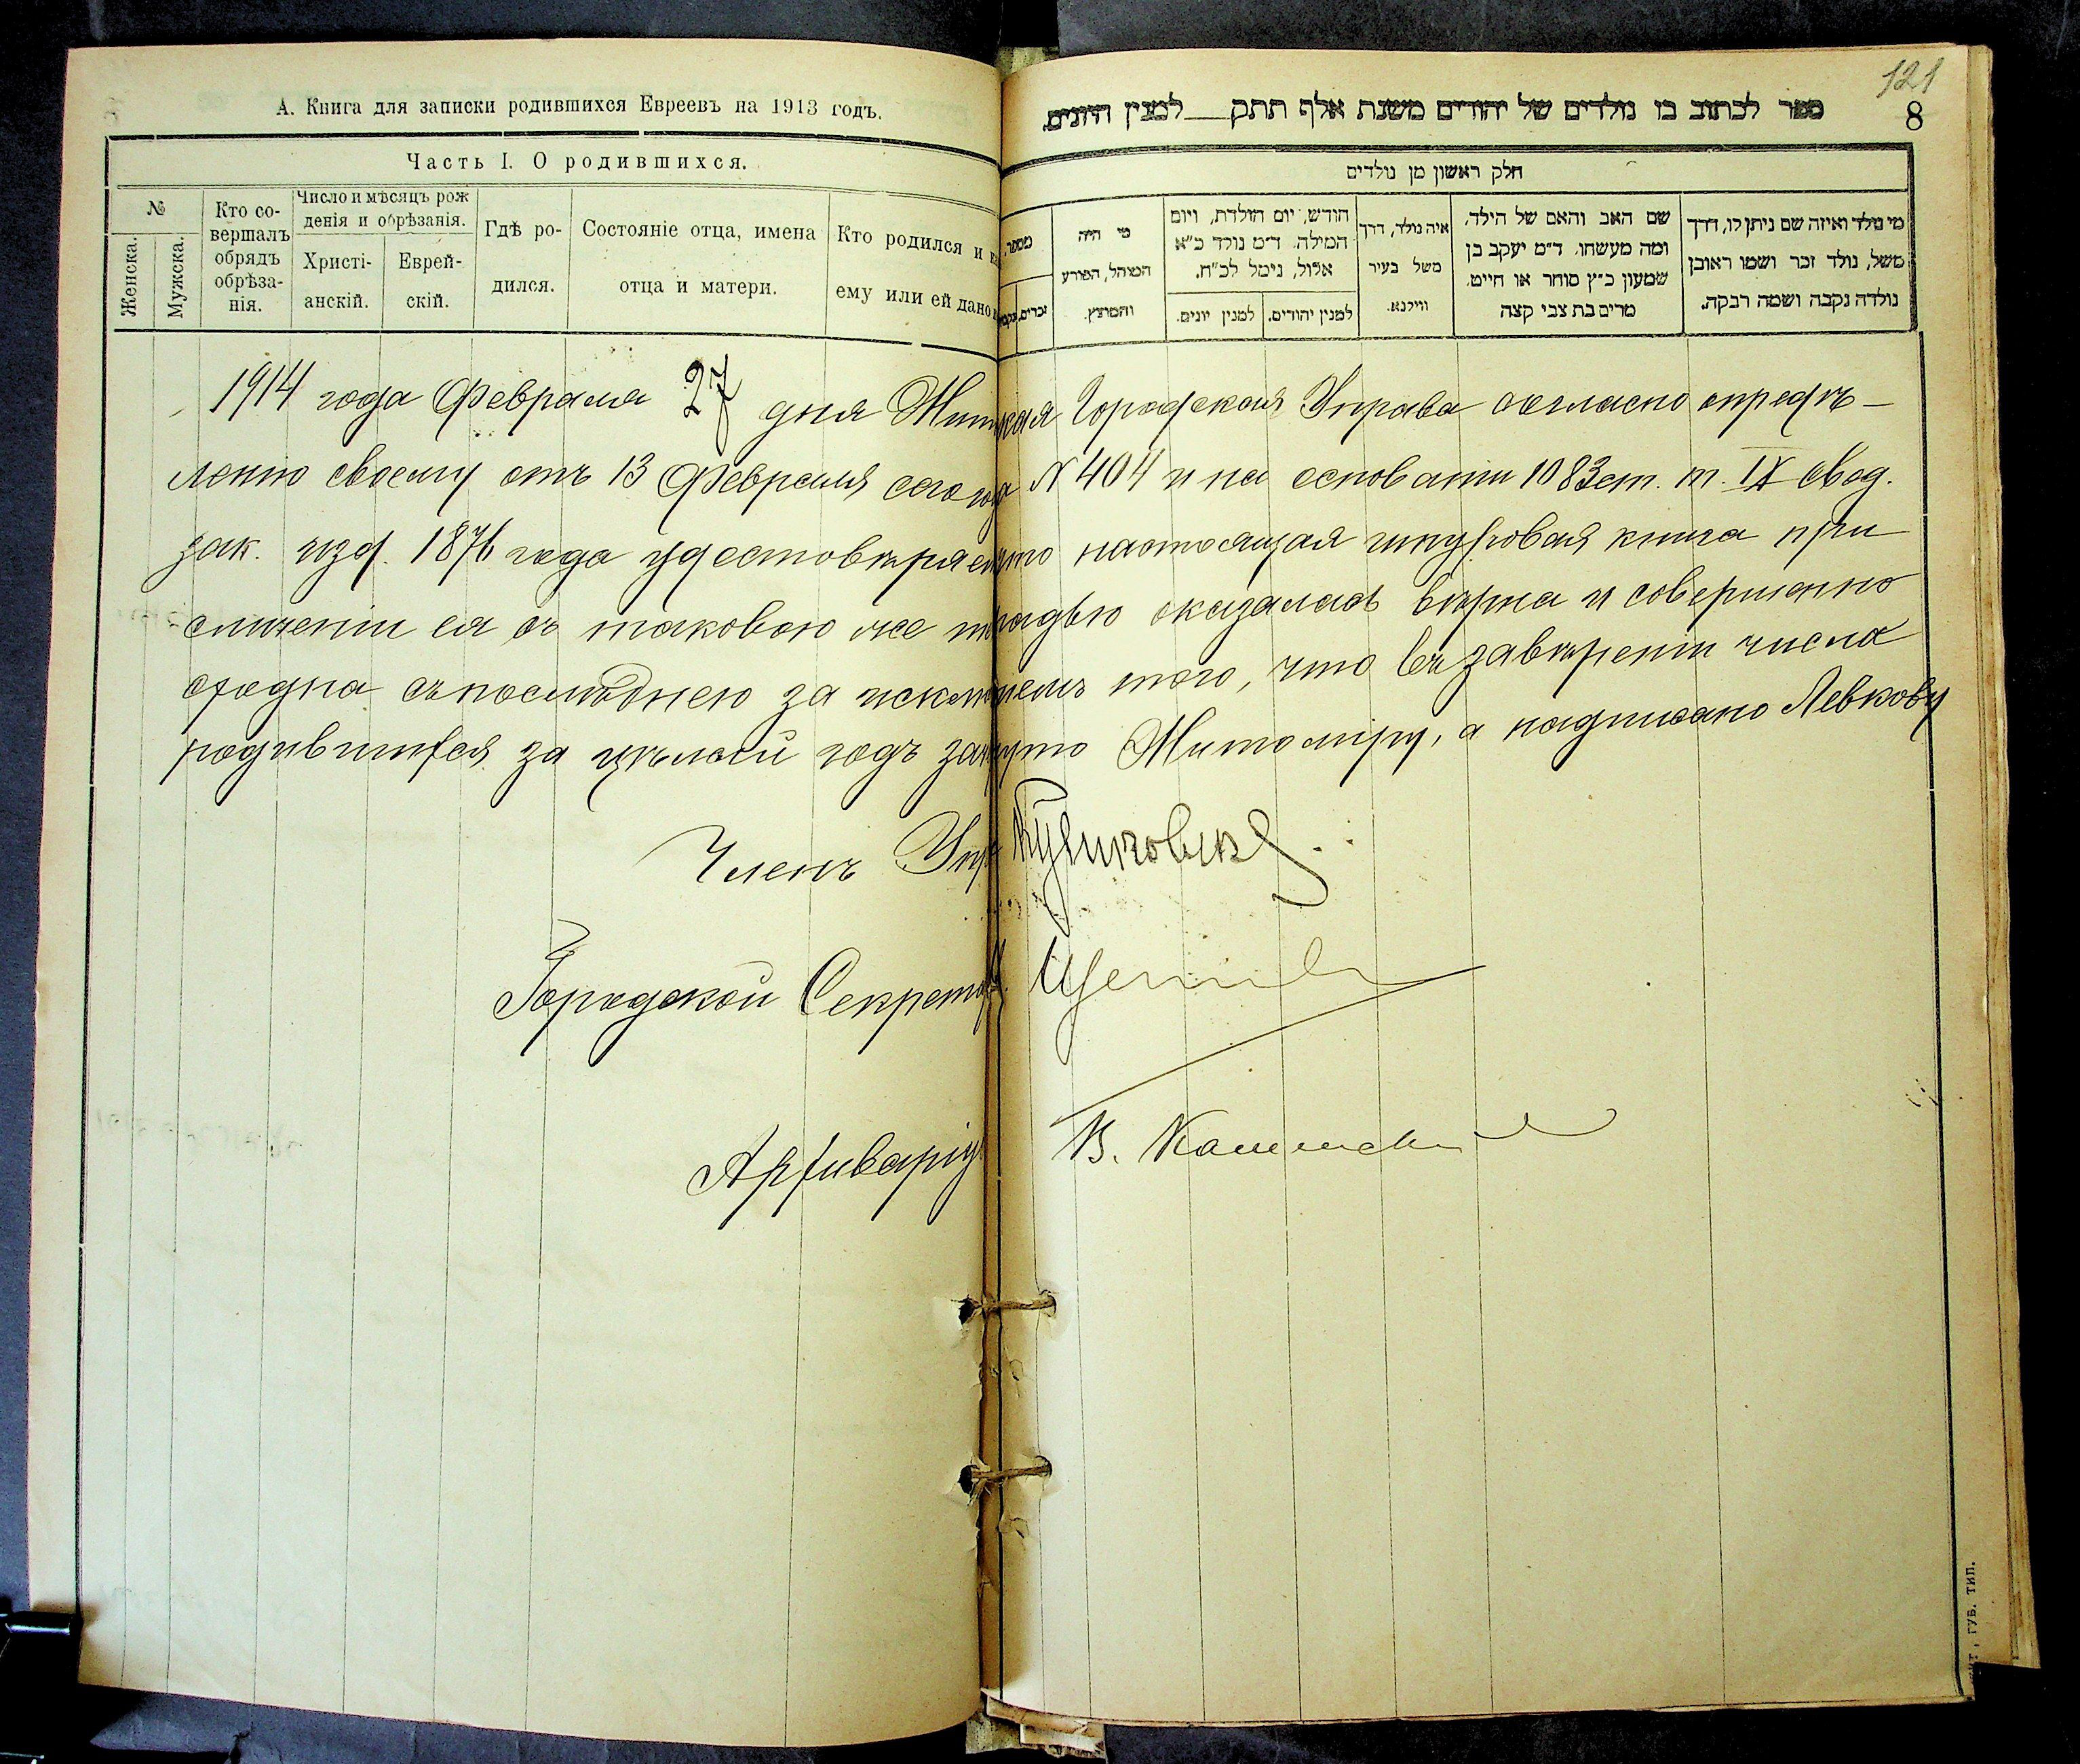 А. Книга для записки родившихся Евреевъ на 1913 годъ.
Часть I. О родившихся.
№
Женска.
Мужска.
Кто со-
вершалъ
обрядъ
обрѣза-
нія.
Число и мѣсяцъ рож
денія и обрѣзанія.
Христі-
анскій.
Еврей-
скій.
Гдѣ ро-
дился.
Состояніе отца, имена
отца и матери.
Кто родился и
ему или ей дано
121
8
ספר לכתוב בו נולדים של יהודים משנת אלף תתק למנין היונים.
חלק ראשון מן נולדים
מספר.
זכרים.
מי היה
המוהל, הפורע
והמוצץ.
חודש, יום הולדת, ויום
המילה. ד״מ נולד כ״א
אלול, נימל לכ״ח.
למנין יונים.
למנין יהודים.
איה נולד, דרך
משל בעיר
ווילנא.
שם האב והאם של הילד,
ומה מעשהו. ד״מ יעקב בן
שמעון כ״ץ סוחר או חייט.
מרים בת צבי קצה
מי נולד ואיזה שם ניתן לו, דרך
משל, נולד זכר ושמו ראובן
נולדה נקבה ושמה רבקה.
1914 года Февраля 27 дня Городская Управа согласно опредѣ-
ленію своему отъ 13 Февраля сего года № 404 и на основаніи 1083 ст. т. IX Свод.
зак. изд. 1876 года удостовѣряетъ что настоящая шнуровая книга при
сличеніи ея съ таковою же тетрадью оказалась вѣрна и совершенно
сходна съ послѣднею за того, что въ завѣреніи числа
родившихся за цѣлый годъ Житоміру, а надписано Левкову
Членъ
Городской
В.
ГУБ. ТИП.